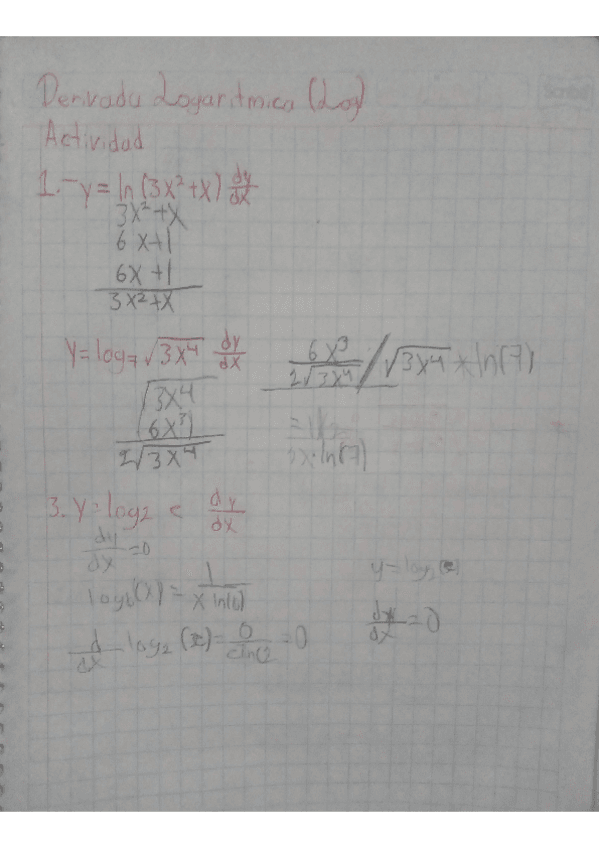 Derivada Logaritmica (Log)
Actividad
1.- y = ln (3x²+x) dy/dx
3x²+x
6x+1
6x+1
3x²+x
y = log₇ √3x⁴ dy/dx
√3x⁴
6x³
2√3x⁴
6x³/2√3x⁴ / √3x⁴ * ln(7)
x·ln(7)
3. y = log₂ e dy/dx
dy/dx = 0
log_b(x) = 1/x ln(b)
d/dx log₂ (e) = 0/eln(2 = 0
y = log₂(e)
dy/dx = 0